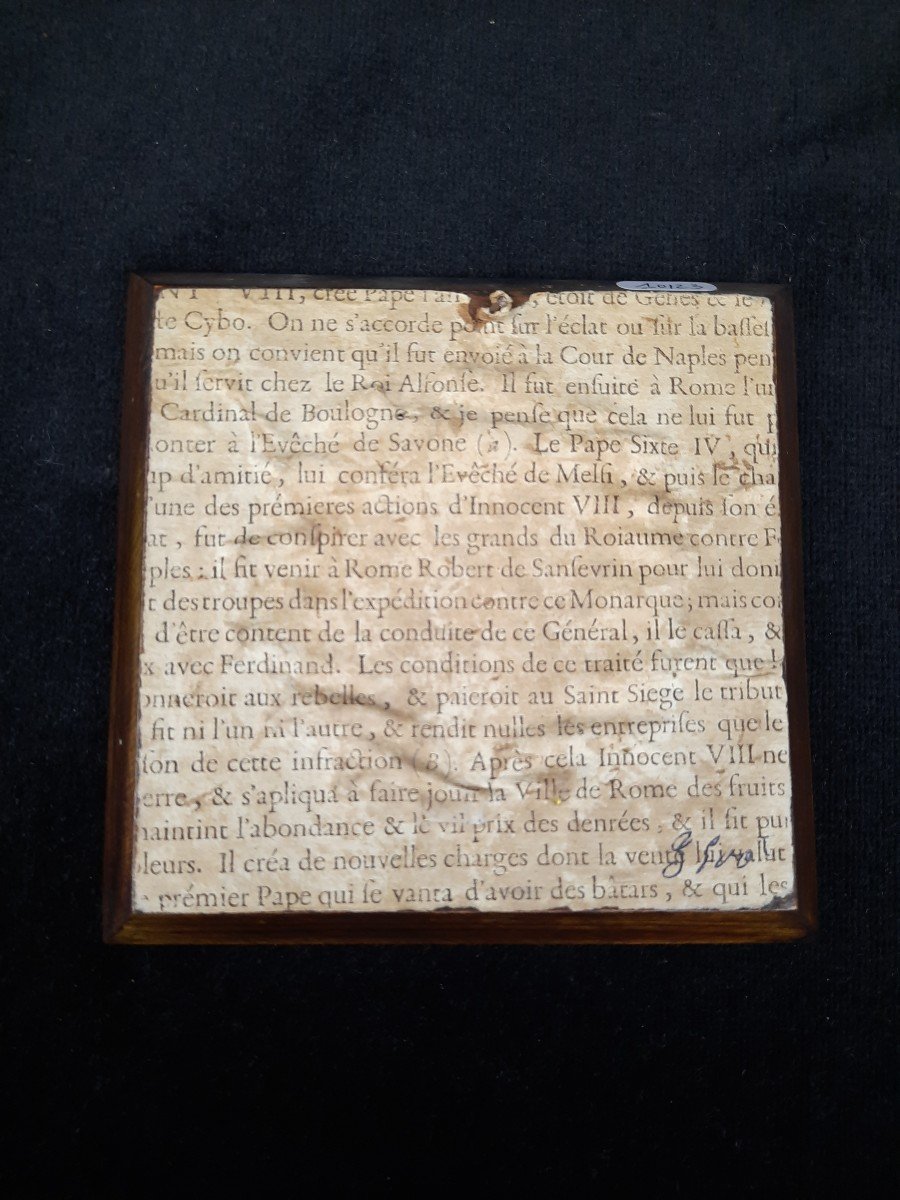 10123
VIII, créé Pape l'an , étoit de Genes & le
te Cybo. On ne s'accorde point ſur l'éclat ou ſur la baſſeſ
mais on convient qu'il fut envoié à la Cour de Naples pen
u'il ſervit chez le Roi Alfonſe. Il fut enſuite à Rome l'u
Cardinal de Boulogne, & je penſe que cela ne lui fut p
onter à l'Evêché de Savone (a). Le Pape Sixte IV, qui
up d'amitié, lui conféra l'Evêché de Melfi, & puis le cha
'une des prémieres actions d'Innocent VIII, depuis ſon é
at, fut de conſpirer avec les grands du Roiaume contre F
ples; il fit venir à Rome Robert de Sanſevrin pour lui don
t des troupes dans l'expédition contre ce Monarque; mais co
d'être content de la conduite de ce Général, il le caſſa, &
x avec Ferdinand. Les conditions de ce traité furent que l
onneroit aux rebelles, & paieroit au Saint Siege le tribut
fit ni l'un ni l'autre, & rendit nulles les entrepriſes que le
ſon de cette infraction (B). Après cela Innocent VIII ne
erre, & s'apliqua à faire jouir la Ville de Rome des fruits
maintint l'abondance & le vil prix des denrées, & il fit pu
oleurs. Il créa de nouvelles charges dont la vente lui valut
prémier Pape qui ſe vanta d'avoir des bâtars, & qui les